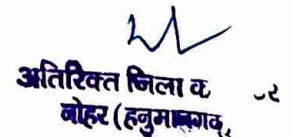 अतिरिक्त जिला क र
नोहर (हनुमानगढ़)